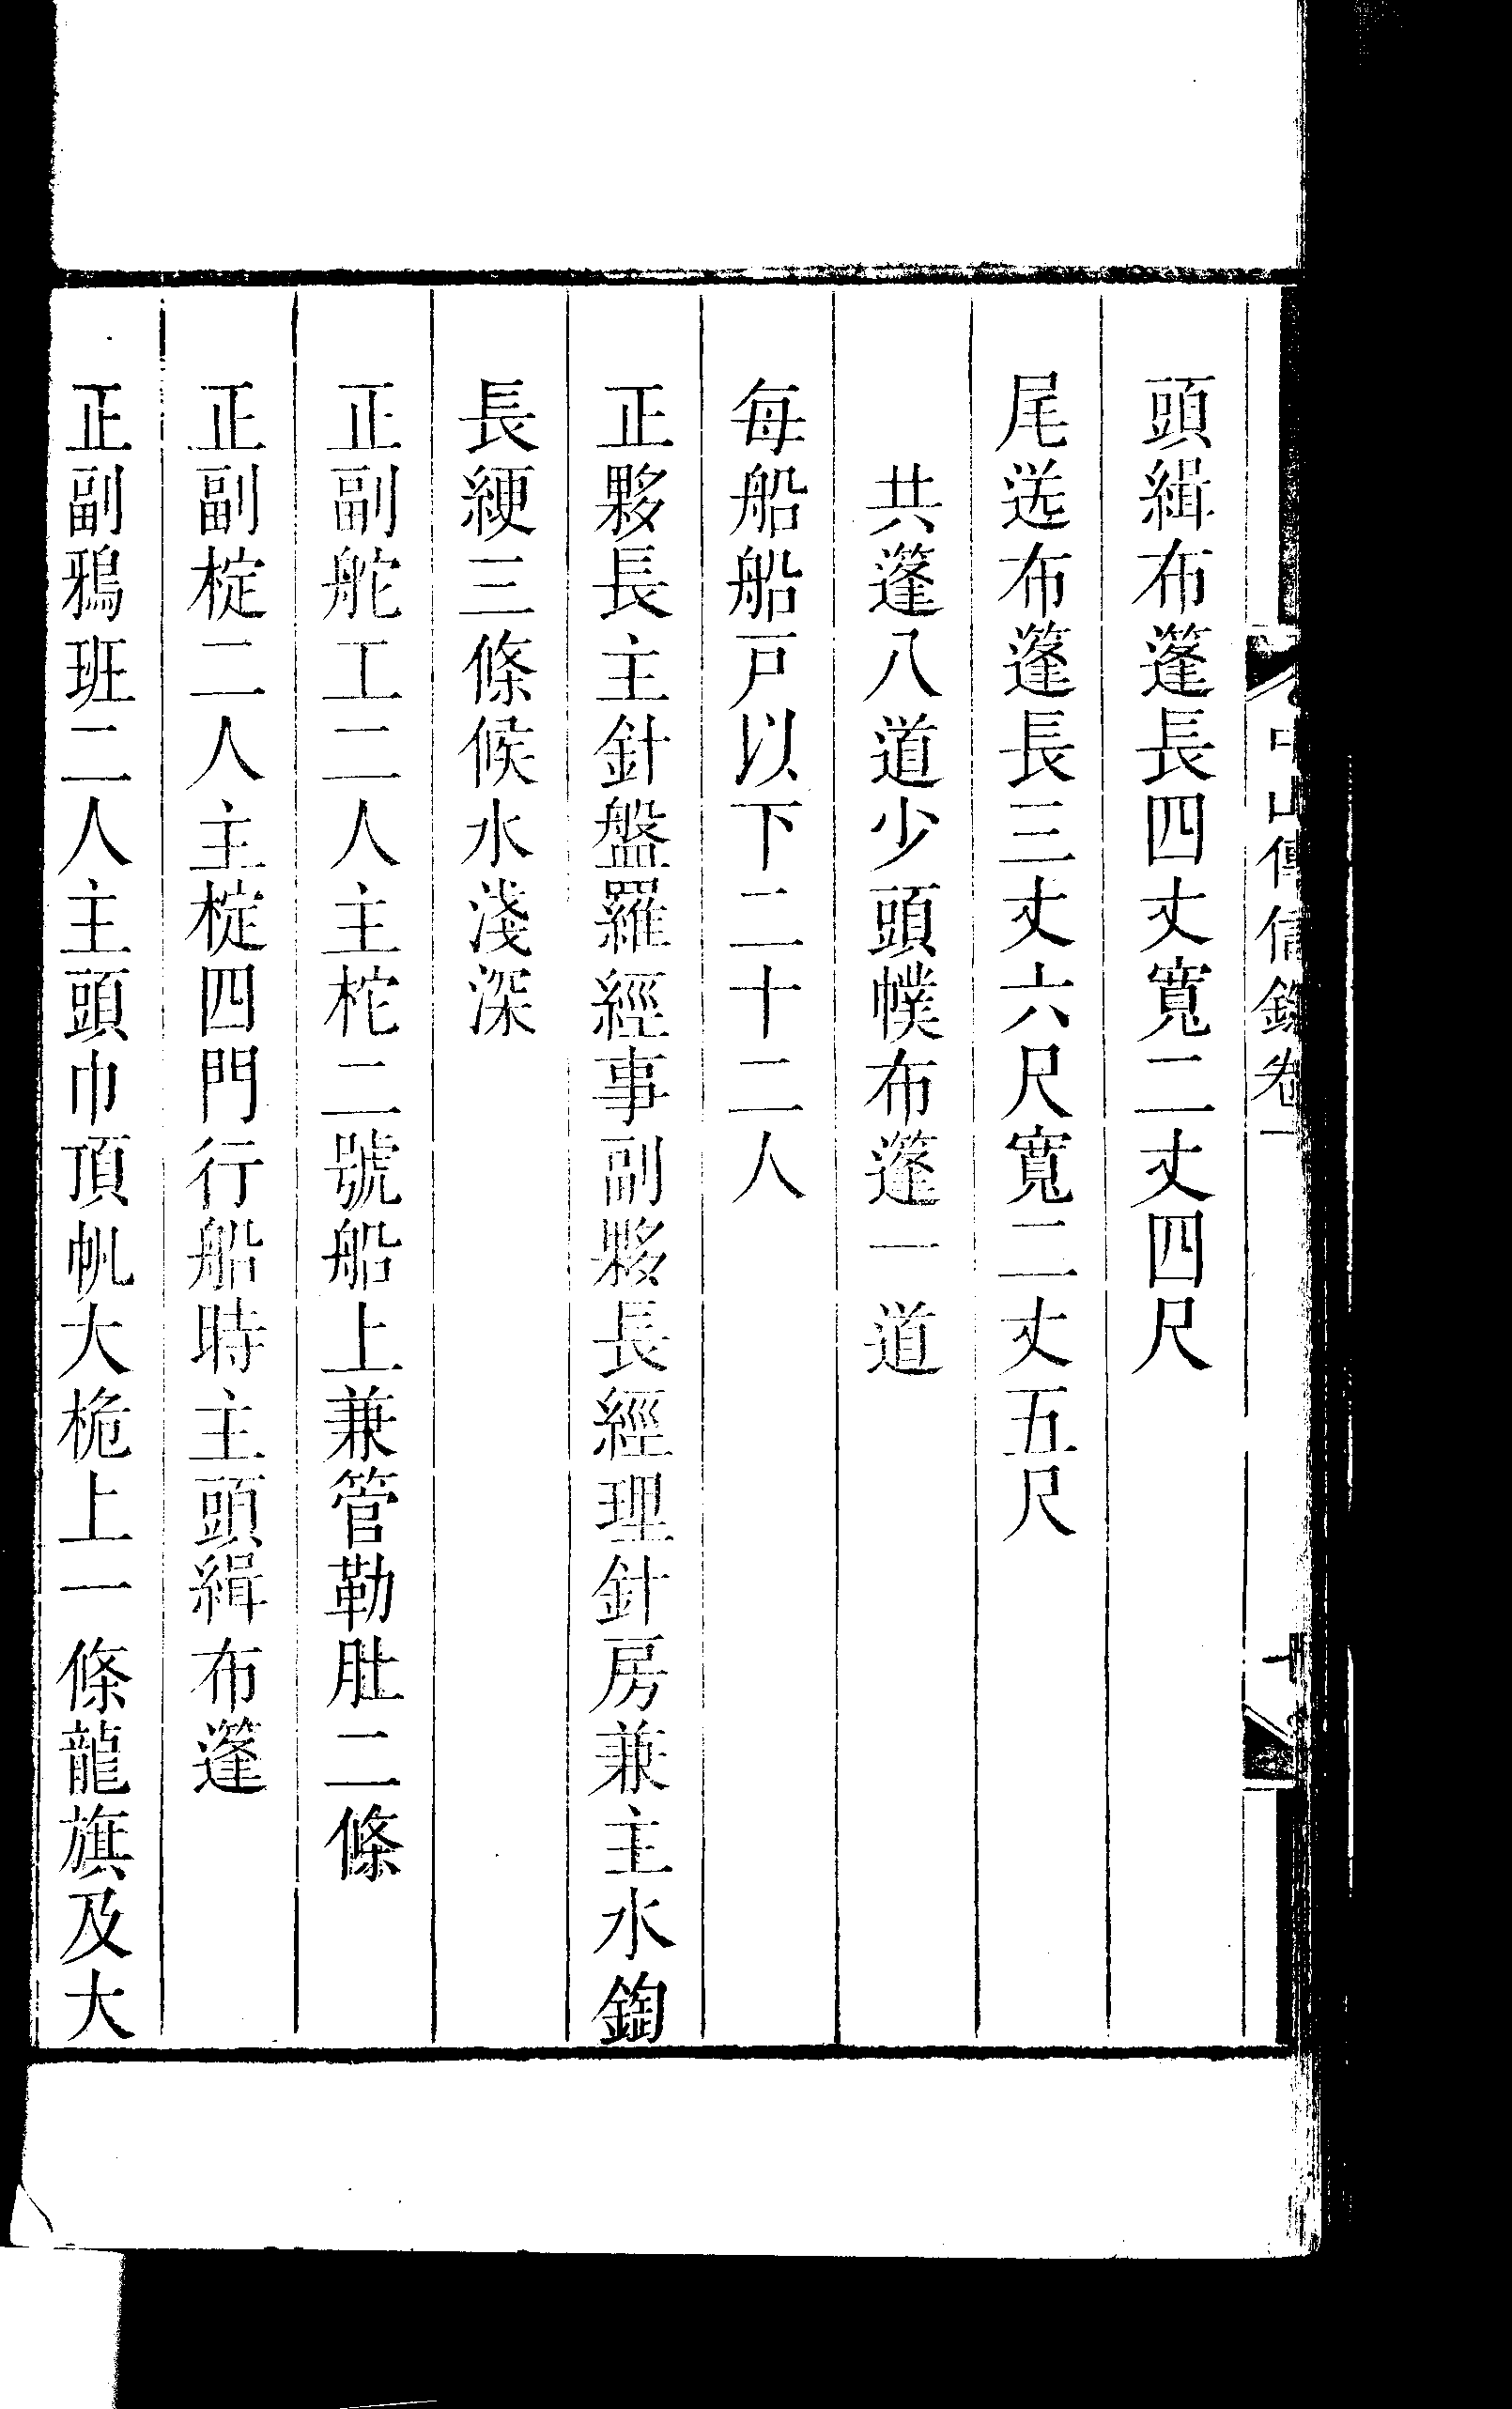 中山傳信錄卷一 十
頭緝布篷長四丈寬二丈四尺
尾送布篷長三丈六尺寬二丈五尺
共篷八道少頭幞布篷一道
每船船戶以下二十二人
正夥長主針盤羅經事副夥長經理針房兼主水鋾
長綆三條候水淺深
正副舵工二人主柁二號船上兼管勒肚二條
正副椗二人主椗四門行船時主頭緝布篷
正副鴉班二人主頭巾頂帆大桅上一條龍旗及大